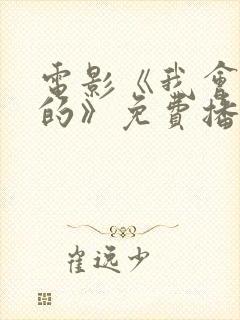 電影《我會
的》免費播
崔逸少